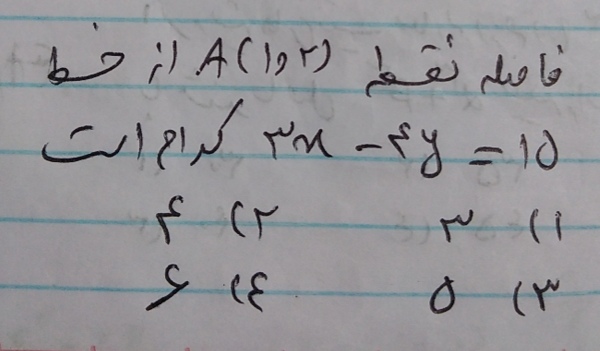 فاصله نقطه A(۱و۲) از خط
۳x - ۴y = ۱۵ کدام است
۱) ۳ ۲) ۴
۳) ۵ ۴) ۶